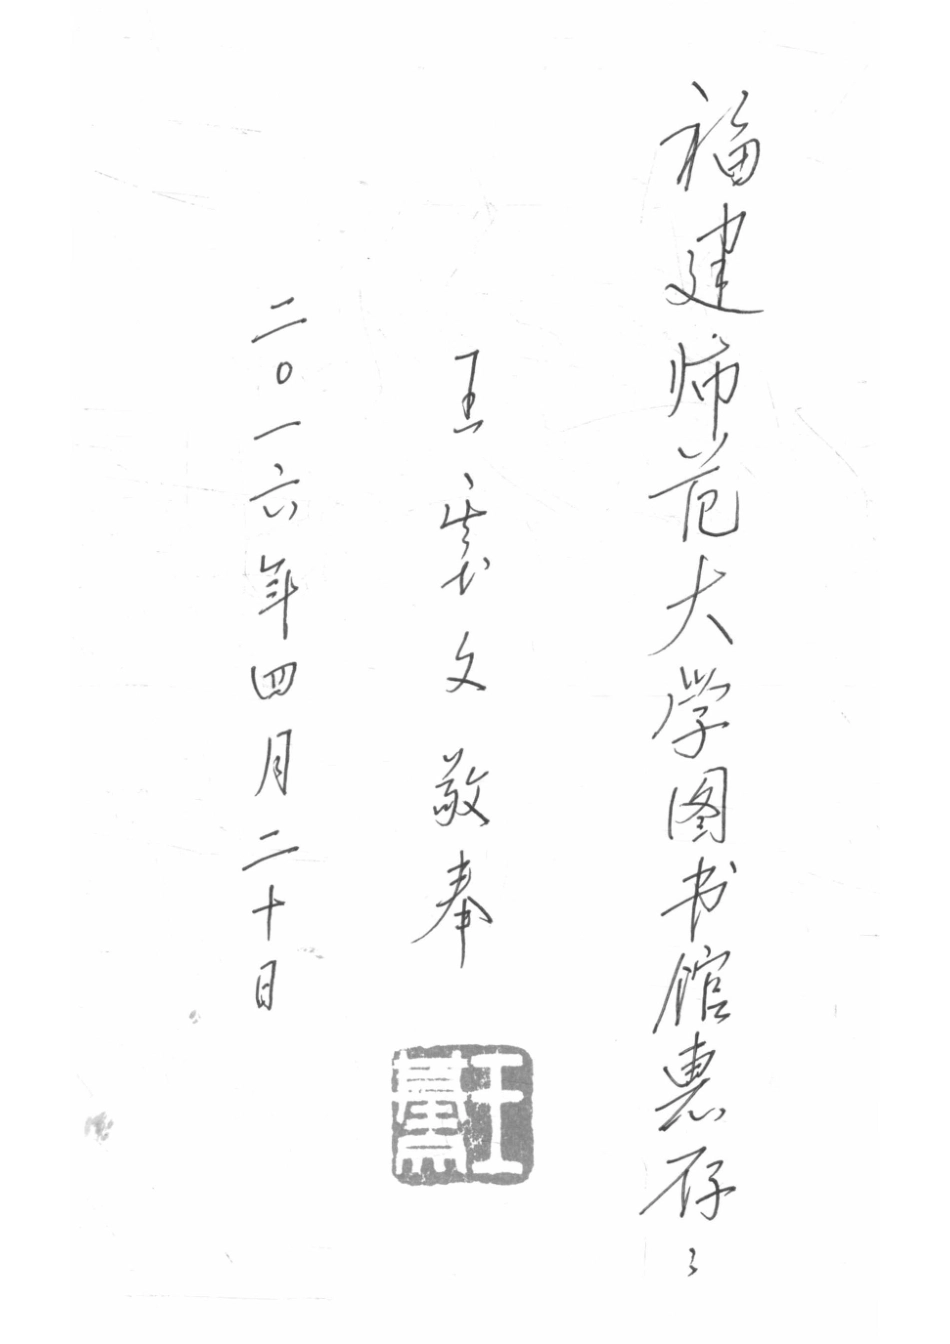 福建师范大学图书馆惠存：
王文 敬奉
二〇一六年四月二十日
王